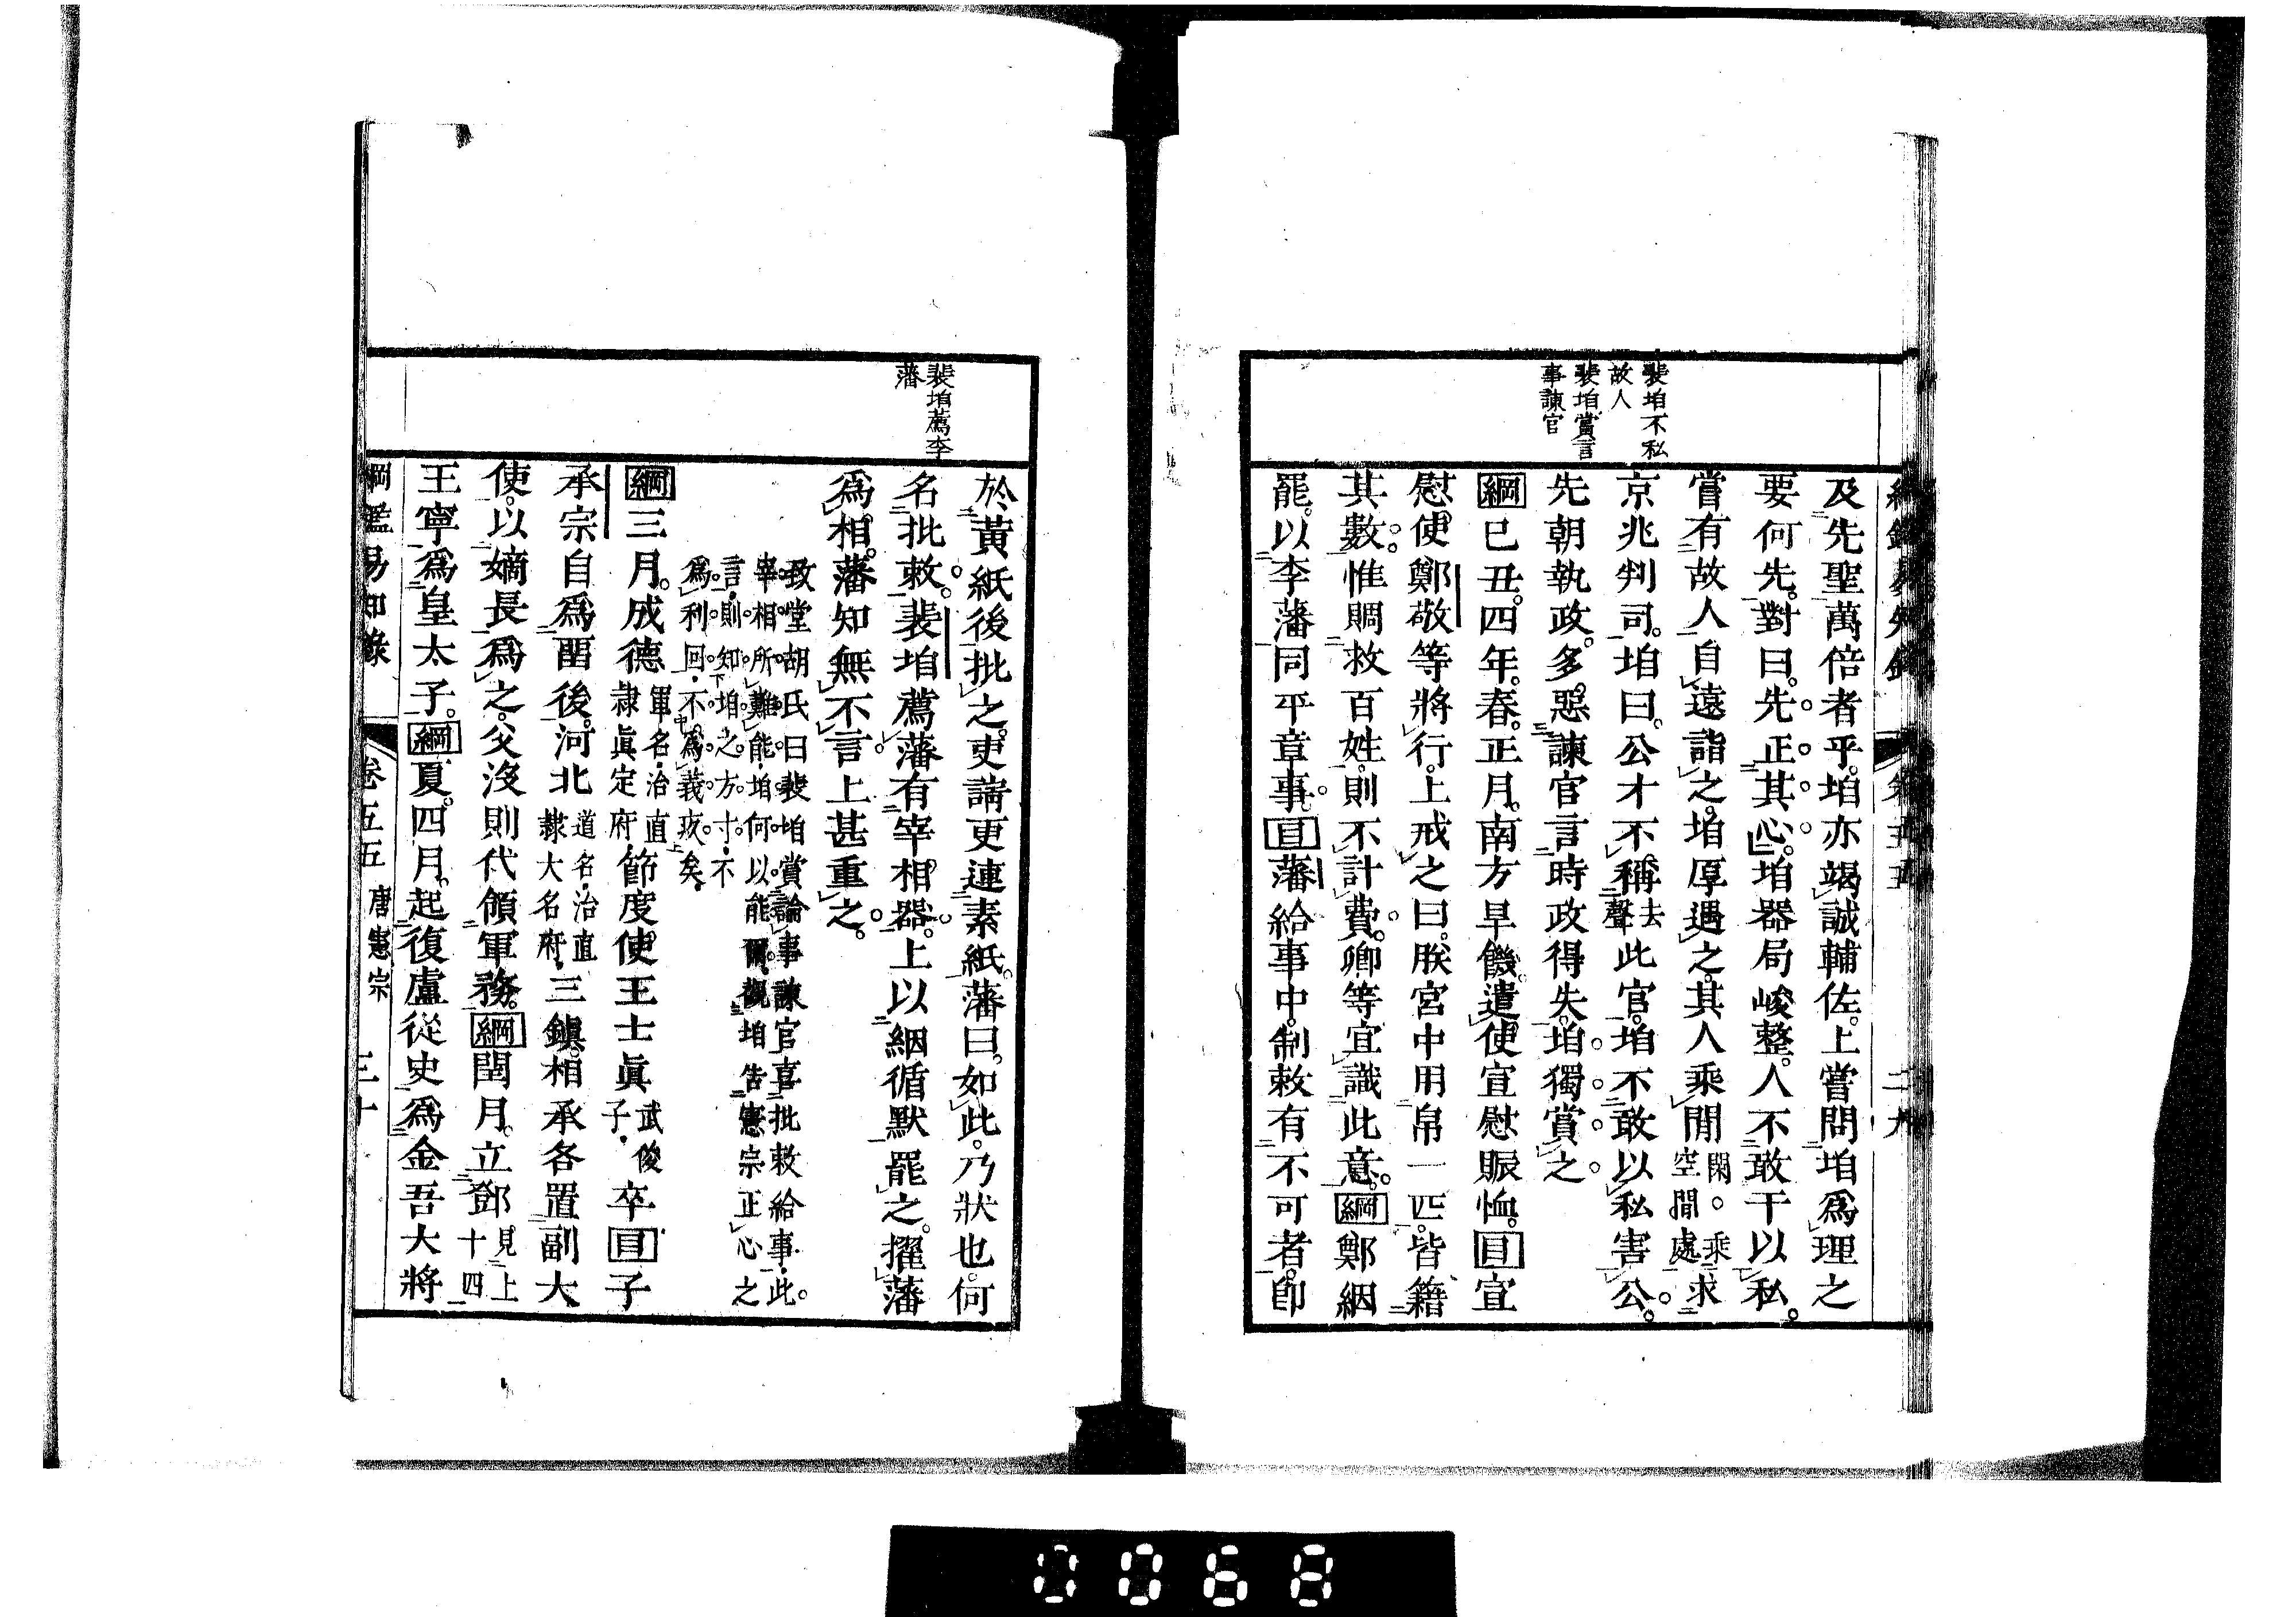 裴垍不私
故人
裴垍賞言
事諫官
及先聖萬倍者乎。垍亦竭誠輔佐。上嘗問垍爲理之
要何先。對曰。先正其心。垍器局峻整。人不敢干以私。
嘗有故人自遠詣之。垍厚遇之。其人乘閒閑。乘求空閒處
京兆判司。垍曰。公才不稱去聲此官。垍不敢以私害公。
先朝執政。多惡諫官言時政得失。垍獨賞之
綱巳丑。四年。春。正月。南方旱饑。遣使宣慰賑恤。目宣
慰使鄭敬等將行。上戒之曰。朕宮中用帛一匹。皆籍
其數。惟賙救百姓。則不計費。卿等宜識此意。綱鄭絪
罷。以李藩同平章事。目藩給事中。制敕有不可者。卽
裴垍薦李
藩
於黃紙後批之。吏請更連素紙。藩曰。如此。乃狀也。何
名批敕。裴垍薦藩有宰相器。上以絪循默罷之。擢藩
爲相。藩知無不言。上甚重之。
致堂胡氏曰裴垍賞論事諫官喜批敕給事此。
宰相所難能。垍何以能爾。觀垍告憲宗正心之
言則知垍之方寸不
爲利回不爲義疚矣。
綱三月。成德軍名。治直隸眞定府。節度使王士眞武俊子。卒目子
承宗自爲留後。河北道名。治直隸大名府。三鎭。相承各置副大
使。以嫡長爲之。父沒則代領軍務。綱閏月。立鄧見上十四
王寧爲皇太子。綱夏。四月。起復盧從史爲金吾大將
綱鑑易知錄 卷五五 唐憲宗 三十
0068